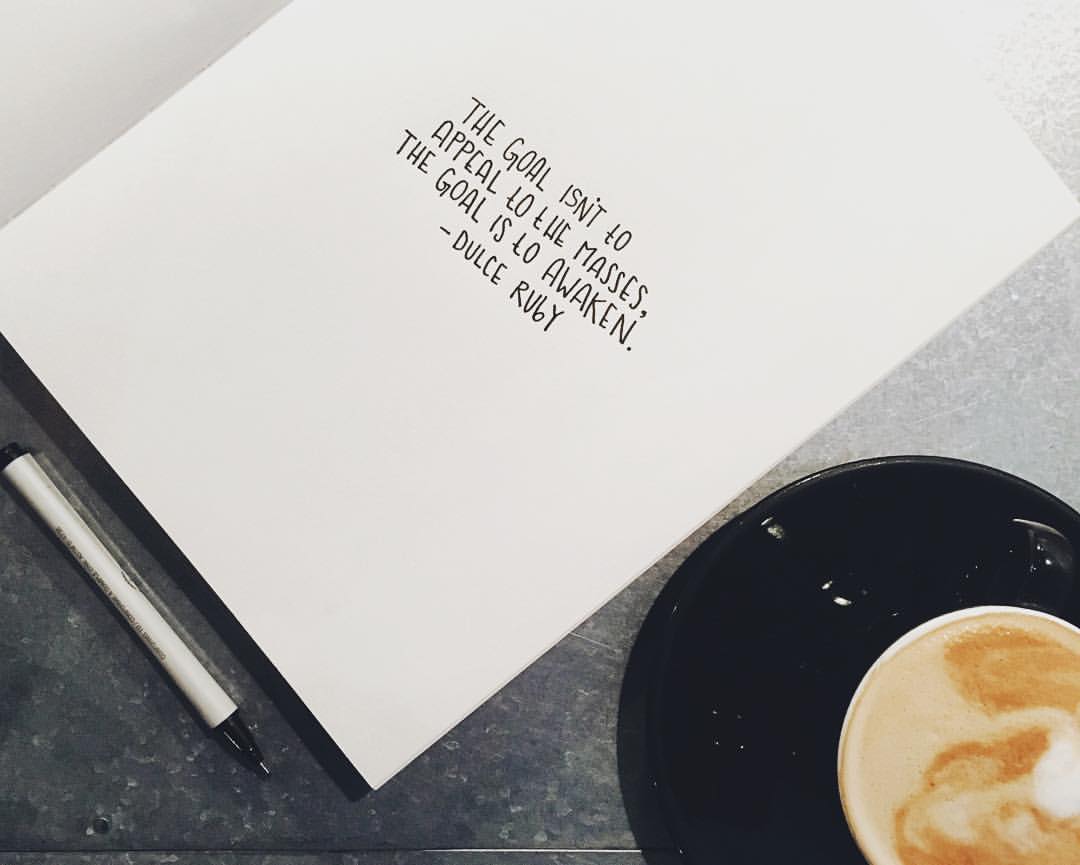 THE GOAL ISN'T TO
APPEAL TO THE MASSES,
THE GOAL IS TO AWAKEN.
- DULCE RUBY